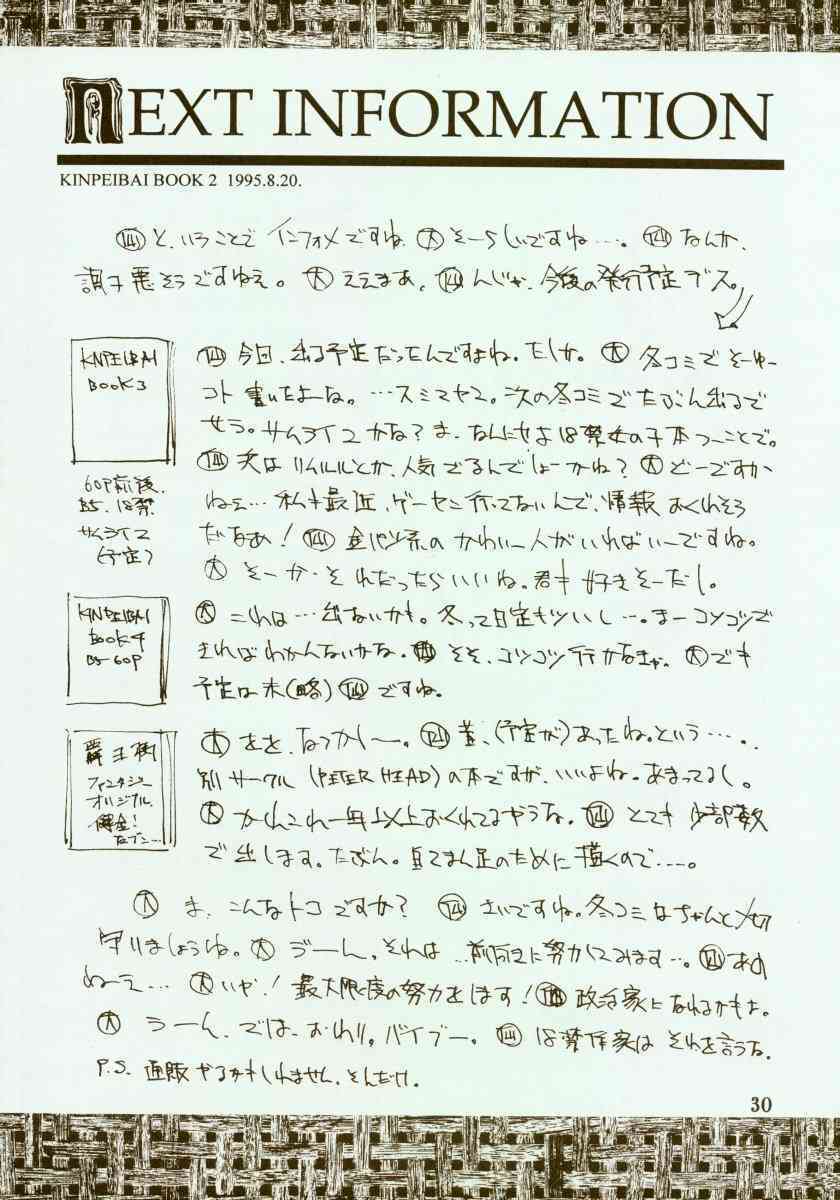 NEXT INFORMATION
KINPEIBAI BOOK 2 1995.8.20.
と、いうことで インフォメですね 大 そーらしいですね…。 なんか、
調子悪そうですねえ。 大 ええまあ、 んじゃ、今後の発行予定デス。
KINPEIBAI
BOOK 3
60P前後.
B5. 18禁
サムライ2
(予定)
今回、出る予定だったんですよね。たしか。 大 冬コミでそーゆー
コト書いたよーな。…スミマセン。次の冬コミでたぶん出るで
せう。サムライ2かな?ま、なんにせよ18禁女の子本つーことで。
はリムルルとか、人気でるんでしょーかね? 大 どーですか
ねぇ…私も最近、ゲーセン行ってないんで、情報おくれそう
だなあ! 金パツ系のかわいー人がいればいーですね。
大 そーか・それだったらいいね。君も好きそーだし。
KINPEIBAI
BOOK 4
B5-60P
大 これは…出ないかも。冬って日定もツいし…。まーコツコツで
きればわかんないかな。 そそ、コツコツ行かなきゃ。 大 でも
予定は未(略) ですね。
覇王樹
ファンタジー
オリジナル
たブン…
大 をを、なつかし〜。 昔、(予定が)あったね。という…..
別サークル (PETER HEAD) の本ですが、いいよね。あまってるし。
大 かれこれ一年以上おくれてるやうな。 とても少部数
で出します。たぶん。自己まん足のために描くので…。
大 ま、こんなトコですか? さいですね。冬コミはちゃんと〆切
守りましょうね。 大 うーん、それは…前向きに努力してみます…。 あの
ねーえ… 大 いや!最大限度の努力をします! 政治家になれるかもよ。
大 うーん、では、おわり。バイブー。 18禁作家はそれを言うな.
P.S. 通販やるかもしれません。そんだけ.
30